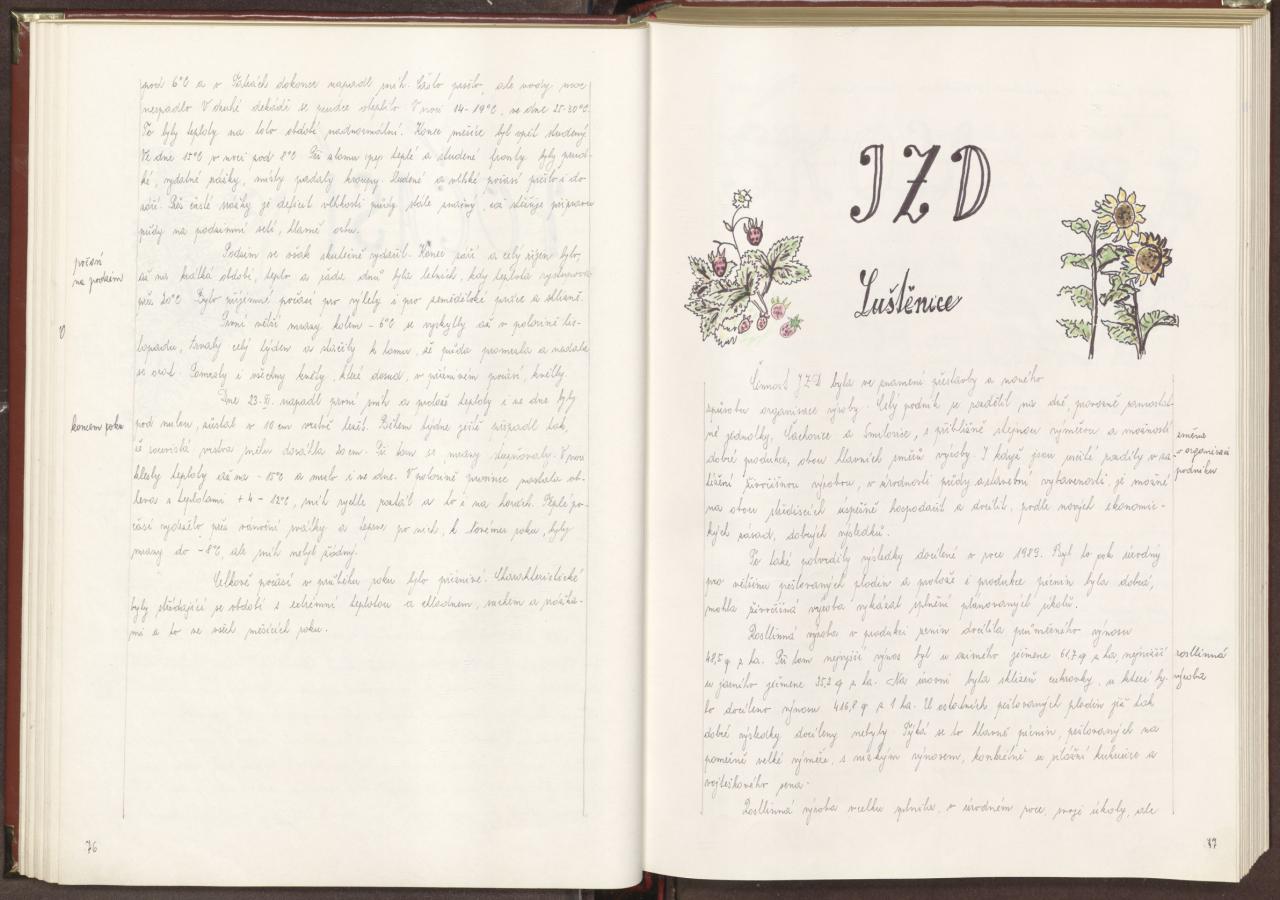 pod 6°C a v Tatrách dokonce napadl sníh. Často pršelo, ale vody moc
nespadlo. V druhé dekádě se prudce oteplilo. V noci 14-19°C, ve dne 25-30°C.
To byly teploty na toto období nadnormální. Konec měsíce byl opět studený
Ve dne 15°C v noci pod 8°C. Při zlomu teplé a studené fronty byly prud-
ké, vydatné srážky, místy padaly kroupy. Studené a vlhké počasí přešlo i do
září. Přes časté srážky je deficit vlhkosti půdy stále značný, což stěžuje přípravu
půdy na podzimní setí, hlavně ozimů.
počasí
na podzim
Podzim se však skutečně vydařil. Konec září a celý říjen bylo,
až na krátká období, teplo a řada dnů byla letních, kdy teplota vystupovala
přes 20°C. Bylo příjemné počasí pro výlety i pro zemědělské práce a sklizně.
První větší mrazy kolem - 6°C se vyskytly až v polovině lis-
topadu, trvaly celý týden a stačily k tomu, že půda promrzla a nedala
se orat. Pomrzly i všechny květy, které dosud, v příznivém počasí, kvetly.
koncem roku
Dne 23. XI. napadl první sníh a protože teploty i ve dne byly
pod nulou, zůstal v 10 cm vrstvě ležet. Během týdne ještě připadl tak,
že souvislá vrstva sněhu dosáhla 20 cm. Při tom se mrazy stupňovaly. V noci
klesly teploty až na - 15°C a mrzlo i ve dne. V polovině prosince nastala ob-
leva s teplotami + 4 - 12°C, sníh rychle roztál a to i na horách. Teplé po-
časí vydrželo přes vánoční svátky a teprve po nich, k konci roku, byly
mrazy do - 8°C, ale sníh nebyl žádný.
Celkově počasí v průběhu roku bylo příznivé. Charakteristické
byly střídající se období s extrémní teplotou a chladnem, suchem a srážka-
mi a to ve všech měsících roku.
76
JZD
Luštěnice
Činnost JZD byla ve znamení přestavby a nového
způsobu organisace výroby. Celý podnik se rozdělil na dvě, provozně samostat-
né jednotky, Čachovice a Smilovice, s přibližně stejnou výměrou a možností
změna
v organizaci
podniku
dobré produkce, obou hlavních směrů výroby. I když jsou určité rozdíly v za-
tížení živočišnou výrobou, v úrodnosti půdy a stavební vybavenosti, je možné
na obou střediscích úspěšně hospodařit a docílit, podle nových ekonomic-
kých zásad, dobrých výsledků.
To také potvrdily výsledky docílené v roce 1989. Byl to rok úrodný
pro většinu pěstovaných plodin a protože i produkce pícnin byla dobrá,
mohla živočišná výroba vykázat splnění plánovaných úkolů.
Rostlinná výroba v produkci zrnin docílila průměrného výnosu
48,5 q z ha. Při tom nejvyšší výnos byl u ozimého ječmene 61,7 q z ha, nejnižší
rostlinná
výroba
u jarního ječmene 35,2 q z ha. Na úrovni byla sklizeň cukrovky, u které by-
lo docíleno výnosu 416,8 q z 1 ha. U ostatních pěstovaných plodin již tak
dobré výsledky docíleny nebyly. Týká se to hlavně pícnin, pěstovaných na
poměrně velké výměře, s nízkým výnosem, konkrétně u silážní kukuřice a
vojtěškového sena.
Rostlinná výroba vcelku splnila, v úrodném roce, svoje úkoly, ale
77